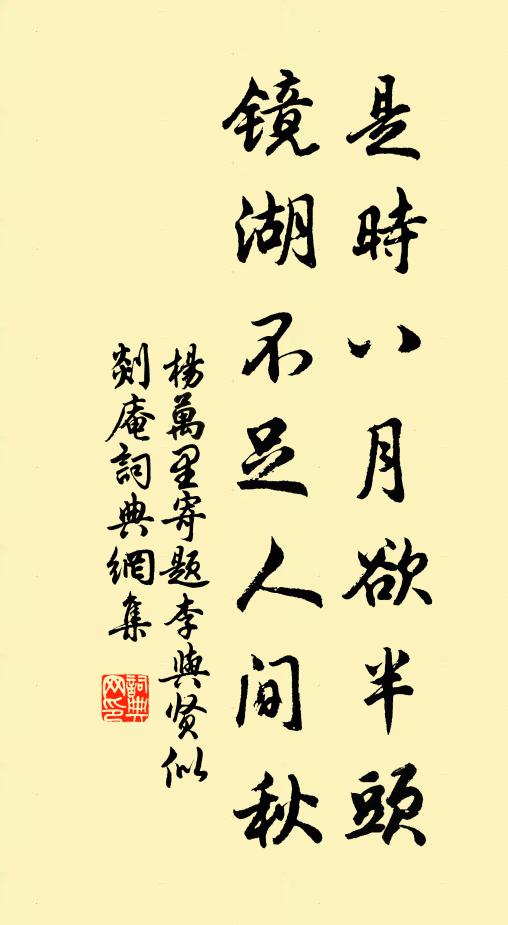 是時八月欲半頭
镜湖不足人间秋
楊萬里寄题李與贤似
剡庵詞典網集
詞典网印